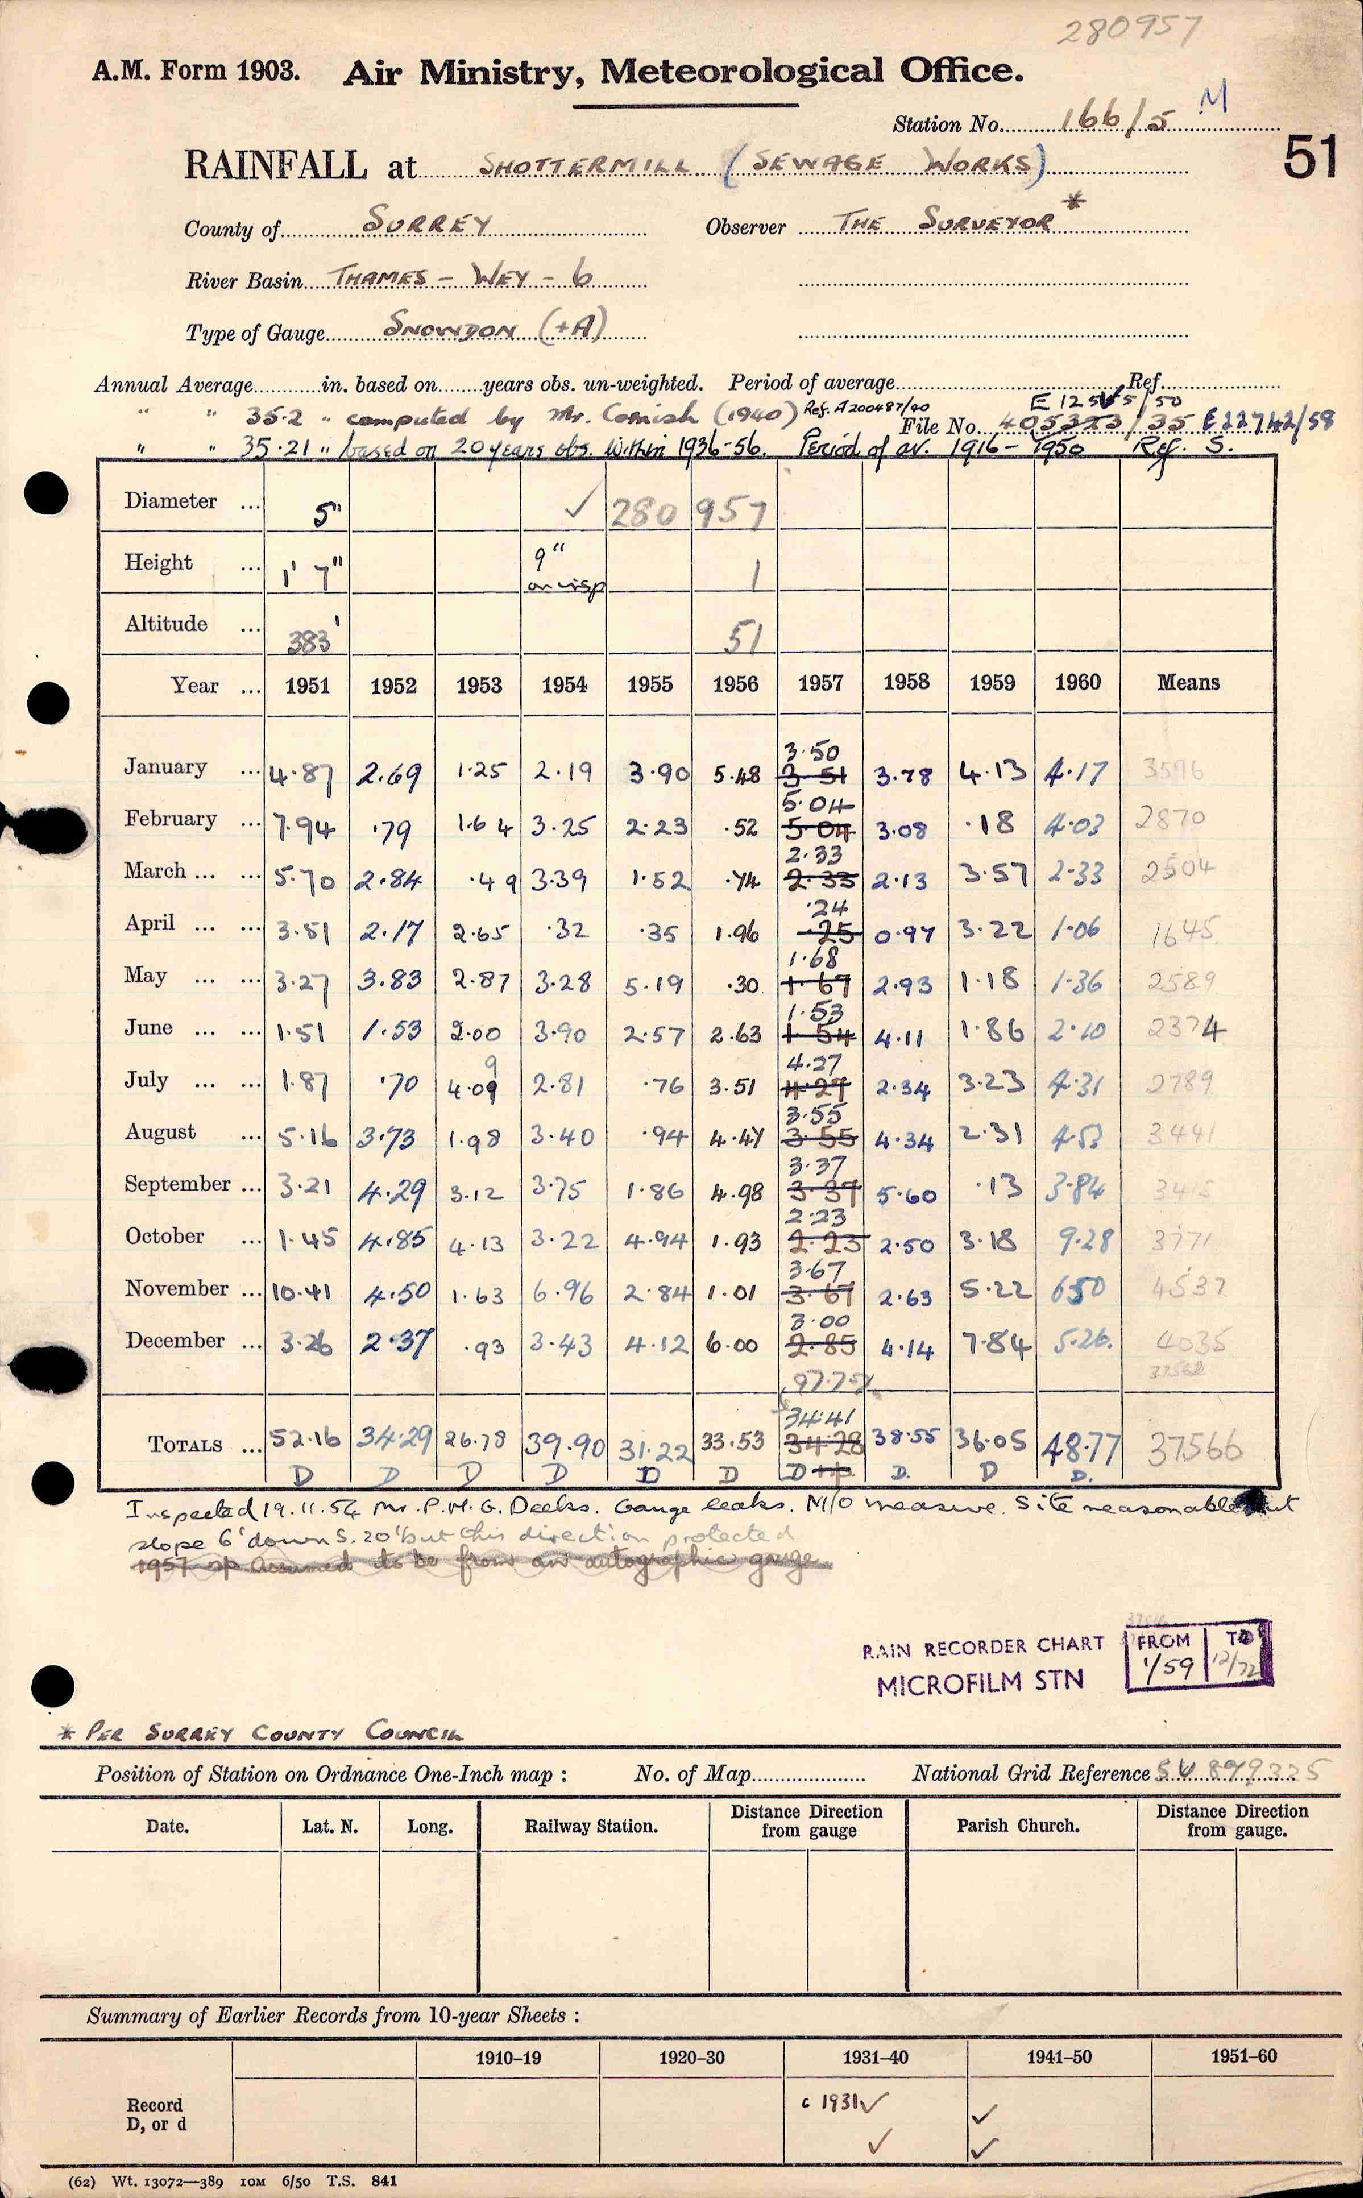 280957
A.M. Form 1903. Air Ministry, Meteorological Office.
Station No. 166/5 M
51
RAINFALL at SHOTTERMILL (SEWAGE WORKS)
County of SURREY Observer THE SURVEYOR *
River Basin THAMES - WEY - 6
Type of Gauge SNOWDON (+A)
Annual Average in. based on years obs. un-weighted. Period of average Ref.
" " 35.2 " computed by Mr. Cornish (1940) Ref. A200487/40 File No. 405323/35 E22742/58
" " 35.21 " based on 20 years obs. within 1936-56. Period of av. 1916-1950 Ref. S.
Diameter ... 5" ✓ 280 957
Height ... 1' 7" 9" on insp 1
Altitude ... 383' 51
Year ... 1951 1952 1953 1954 1955 1956 1957 1958 1959 1960 Means
January ... 4.87 2.69 1.25 2.19 3.90 5.48 3.50 3.51 3.78 4.13 4.17 3596
February ... 7.94 .79 1.64 3.25 2.23 .52 5.04 5.04 3.08 .18 4.03 2870
March ... ... 5.70 2.84 .49 3.39 1.52 .74 2.33 2.33 2.13 3.57 2.33 2504
April ... ... 3.51 2.17 2.65 .32 .35 1.96 .24 .25 0.97 3.22 1.06 1645
May ... ... 3.27 3.83 2.87 3.28 5.19 .30 1.68 1.67 2.93 1.18 1.36 2589
June ... ... 1.51 1.53 2.00 3.90 2.57 2.63 1.53 1.54 4.11 1.86 2.10 2374
July ... ... 1.87 .70 4.09 9 2.81 .76 3.51 4.27 4.27 2.34 3.23 4.31 2789
August ... 5.16 3.73 1.98 3.40 .94 4.47 3.55 3.55 4.34 2.31 4.53 3441
September ... 3.21 4.29 3.12 3.75 1.86 4.98 3.37 3.37 5.60 .13 3.84 3415
October ... 1.45 4.85 4.13 3.22 4.94 1.93 2.23 2.23 2.50 3.18 9.28 3771
November ... 10.41 4.50 1.63 6.96 2.84 1.01 3.67 3.67 2.63 5.22 6.50 4537
December ... 3.26 2.37 .93 3.43 4.12 6.00 3.00 2.85 4.14 7.84 5.26 4035
TOTALS ... 52.16 34.29 26.78 39.90 31.22 33.53 34.41 34.28 38.55 36.05 48.77 37566
D D D D D D D D. D D.
Inspected 19.11.54 Mr. P.M.G. Deeks. Gauge leaks. M/O measure. Site reasonable but
slope 6' down S. 20' but this direction protected
1957 sp assumed to be from an autographic gauge
RAIN RECORDER CHART FROM TO
MICROFILM STN 1/59 12/72
* PER SURREY COUNTY COUNCIL
Position of Station on Ordnance One-Inch map : No. of Map National Grid Reference SU 899325
Date. Lat. N. Long. Railway Station. Distance Direction from gauge Parish Church. Distance Direction from gauge.
Summary of Earlier Records from 10-year Sheets :
1910–19 1920–30 1931–40 1941–50 1951–60
Record c 1931 ✓ ✓
D, or d ✓ ✓
(62) Wt. 13072—389 10M 6/50 T.S. 841